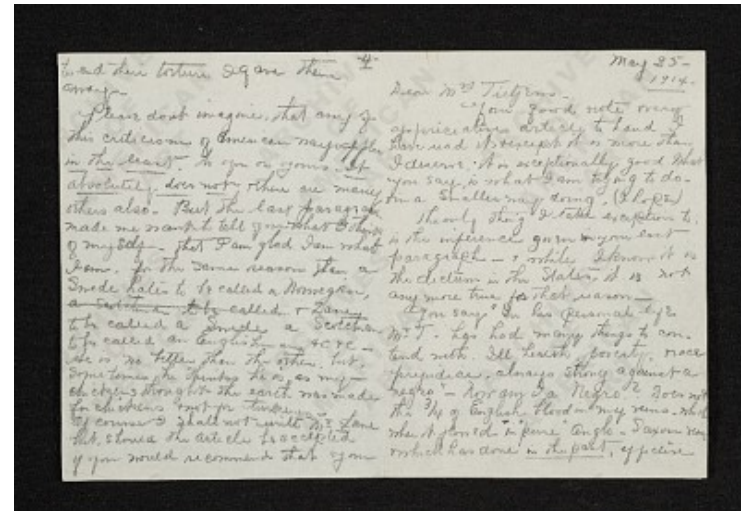 4
to end there torture I gave them
away—
Please dont imagine, that any of
this criticism of American may apply
in the least. to you or yours. It
absolutely does not & there are many
others also. But the last paragraph
made me want to tell you what I think
of myself— that I am glad I am what
I am. for the same reason that a
Swede hates to be called a Norwegian,
a Dane
to be called a Swede a Scotchman
to be called an English— an &c &c—
He is no better than the other, but,
sometimes he thinks he is as my—
chickens thought the earth was made
for chickens & not for turkeys—
Of course I shall not write Mr Lane
but, should the article be accepted
if you would recommend that your
May 25—
1914.
Dear Mrs Tietjens—
Your good note & very
appreciative article to hand. I
have read it & except it is more than
I deserve. it is exceptionally good. What
you say, is what I am trying to do—
& in a smaller way doing. (I hope)
The only thing I take exception to.
is the inference given in your last
paragraph— & while I know it is
the dictum in the States, it is not
any more true for that reason—
You say "In his personal life
Mr T. has had many things to con-
tend with. Ill health, poverty, race
prejudice, always strong against a
negro"— Now am I a Negro? Does not
the 3/4 of English blood in my veins. which
when it flowed in "pure" Anglo-Saxon veins
& which has done in the past, effective